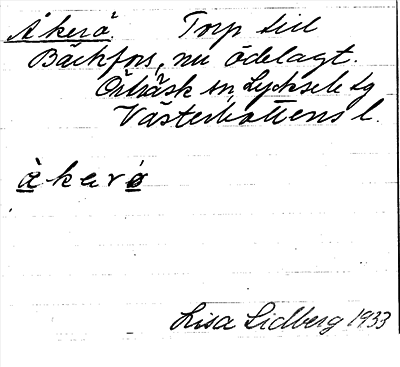 Åkerö. Torp till
Bäckfors, nu ödelagt.
Örträsk sn, Lycksele tg
Västerbottens l.
åkerö
Lisa Lidberg 1933